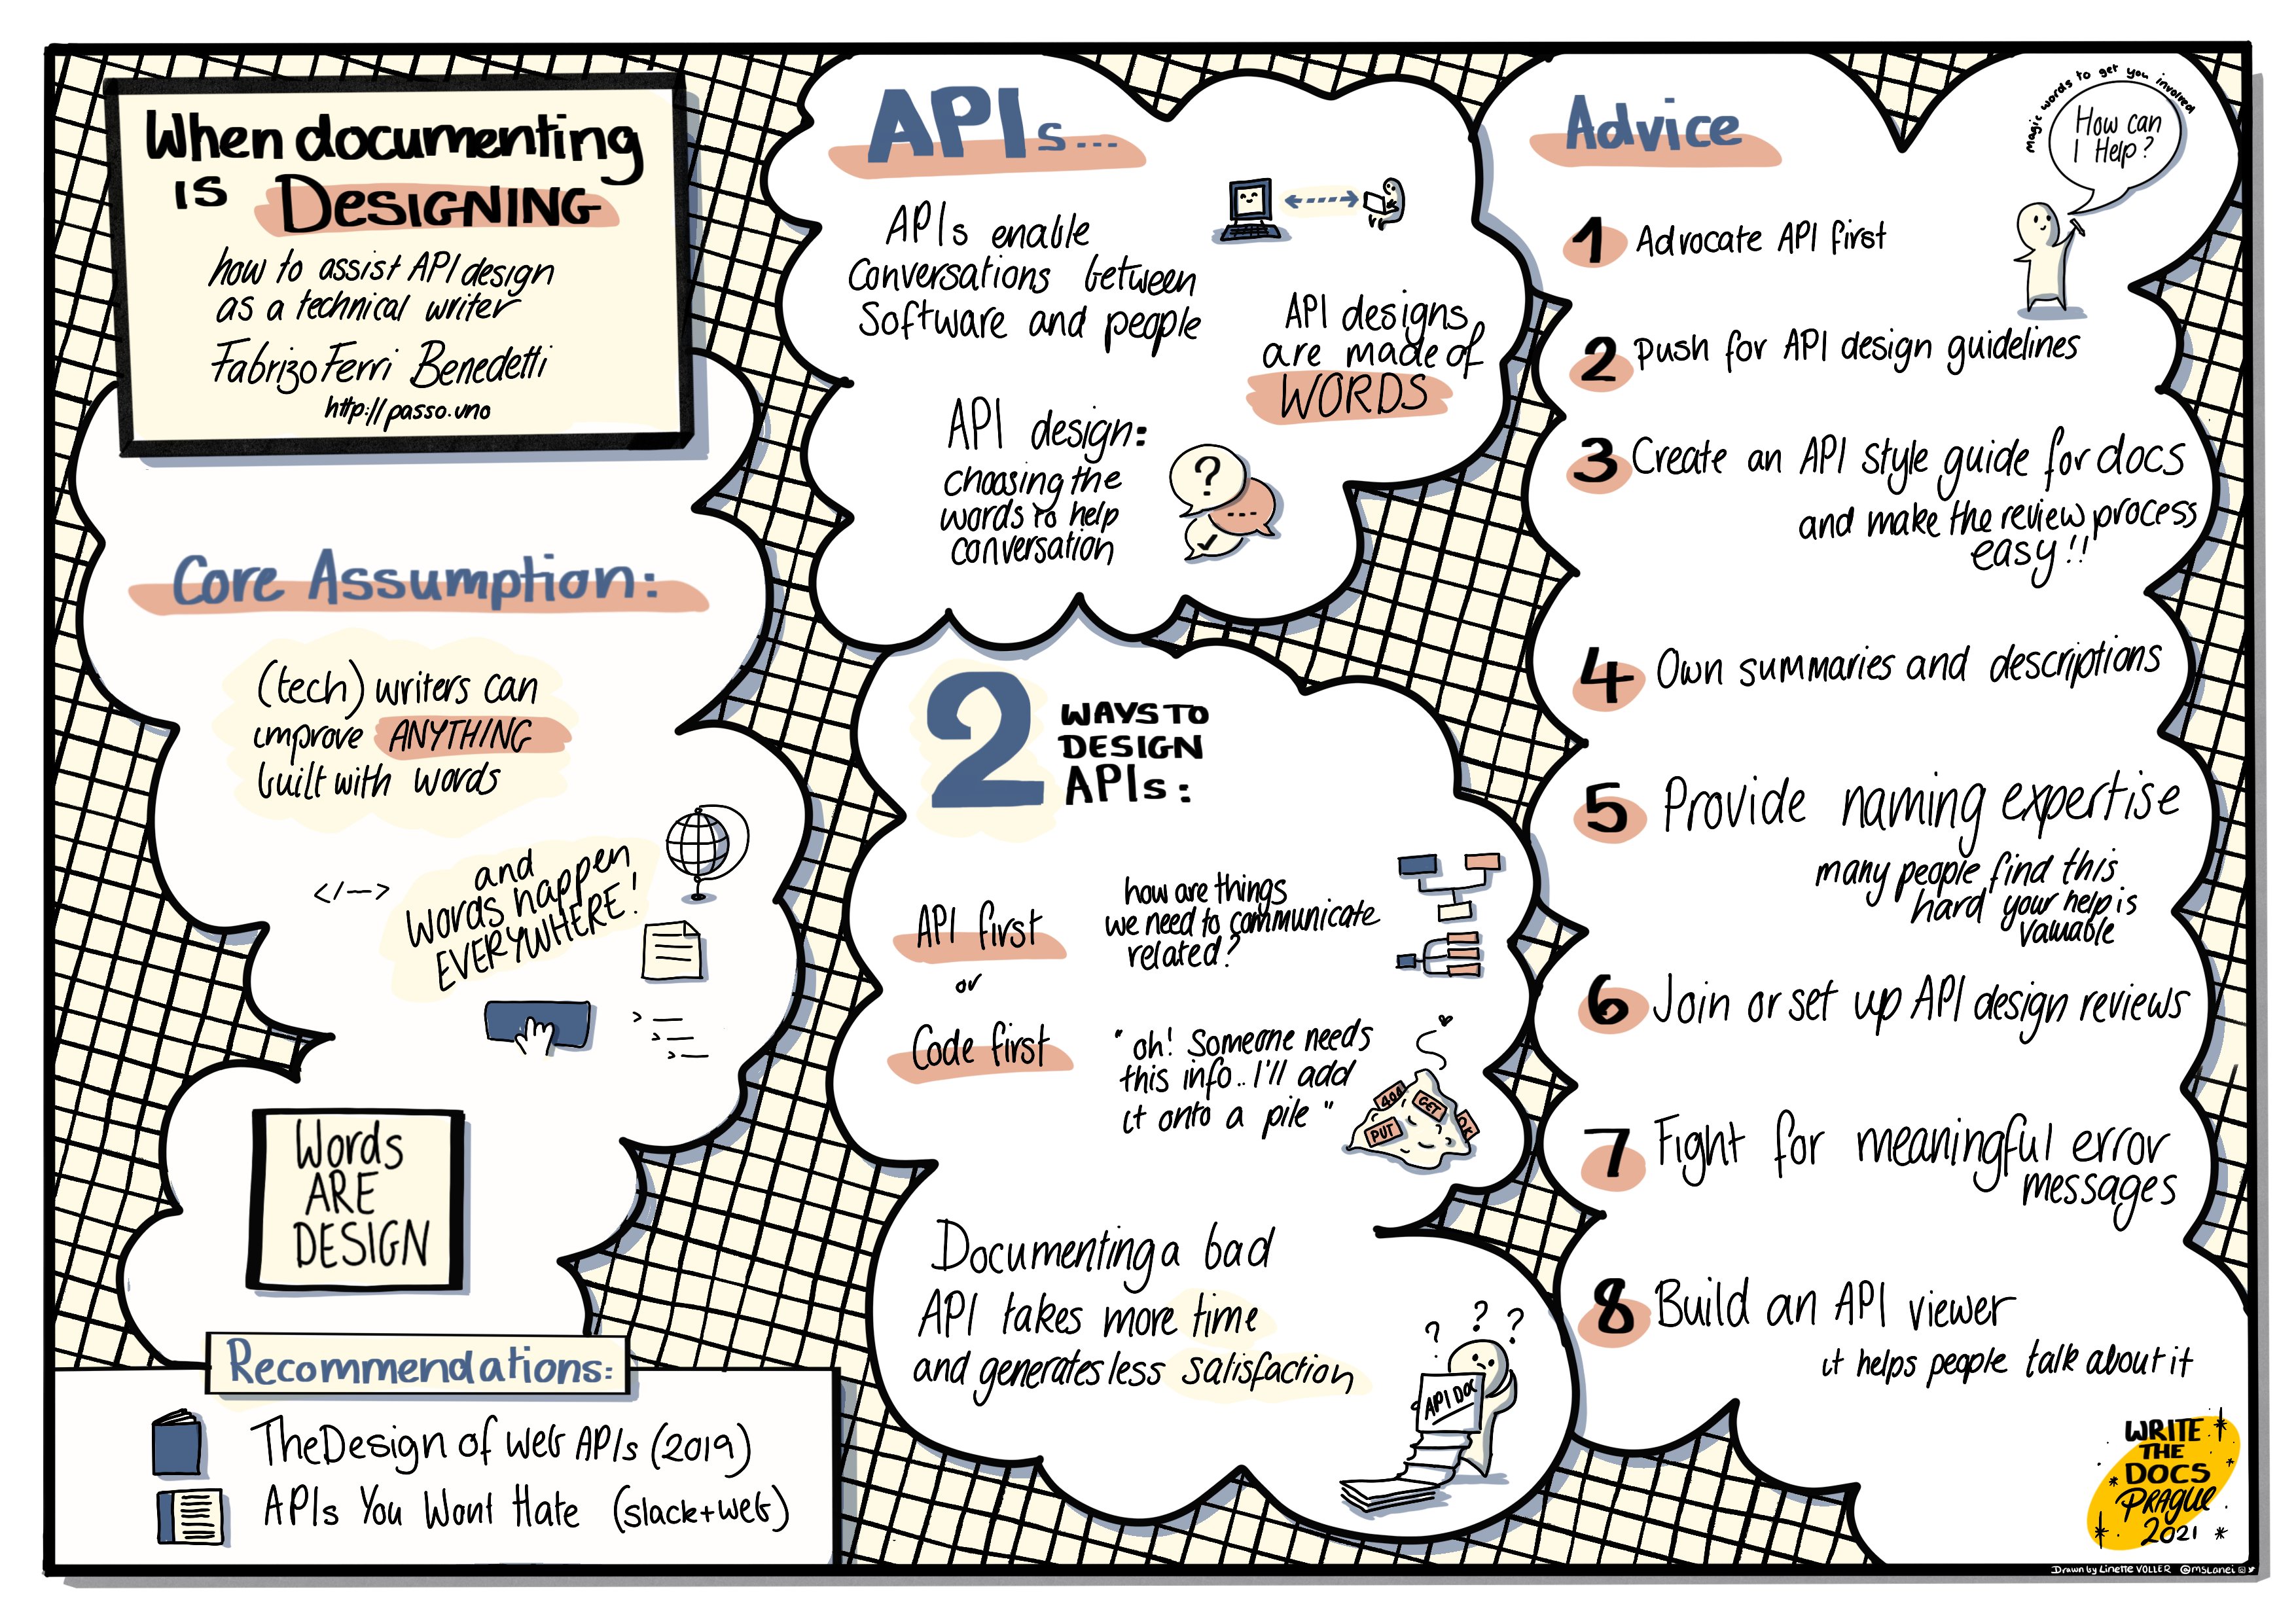 When documenting
IS DESIGNING
how to assist API design
as a technical writer
Fabrizo Ferri Benedetti
http://passo.uno
Core Assumption:
(tech) writers can
improve ANYTHING
built with words
</-->
and
words happen
EVERYWHERE!
Words
ARE
DESIGN
Recommendations:
The Design of Web APIs (2019)
APIs You Wont Hate (slack+web)
APIs...
APIs enable
Conversations between
Software and people
API designs
are made of
WORDS
API design:
choosing the
words to help
conversation
?
...
2 WAYS TO
DESIGN
APIs:
API first
or
Code first
how are things
we need to communicate
related?
"oh! Someone needs
this info.. I'll add
it onto a pile"
404
GET
PUT
OK
Documenting a bad
API takes more time
and generates less satisfaction
? ? ?
API DOC
Advice
magic words to get you involved
How can
I Help?
1 Advocate API first
2 push for API design guidelines
3 Create an API style guide for docs
and make the review process
easy!!
4 Own summaries and descriptions
5 Provide naming expertise
many people find this
hard your help is
valuable
6 Join or set up API design reviews
7 Fight for meaningful error
messages
8 Build an API viewer
it helps people talk about it
WRITE
THE
DOCS
PRAGUE
2021
Drawn by Linette VOLLER @mslanei